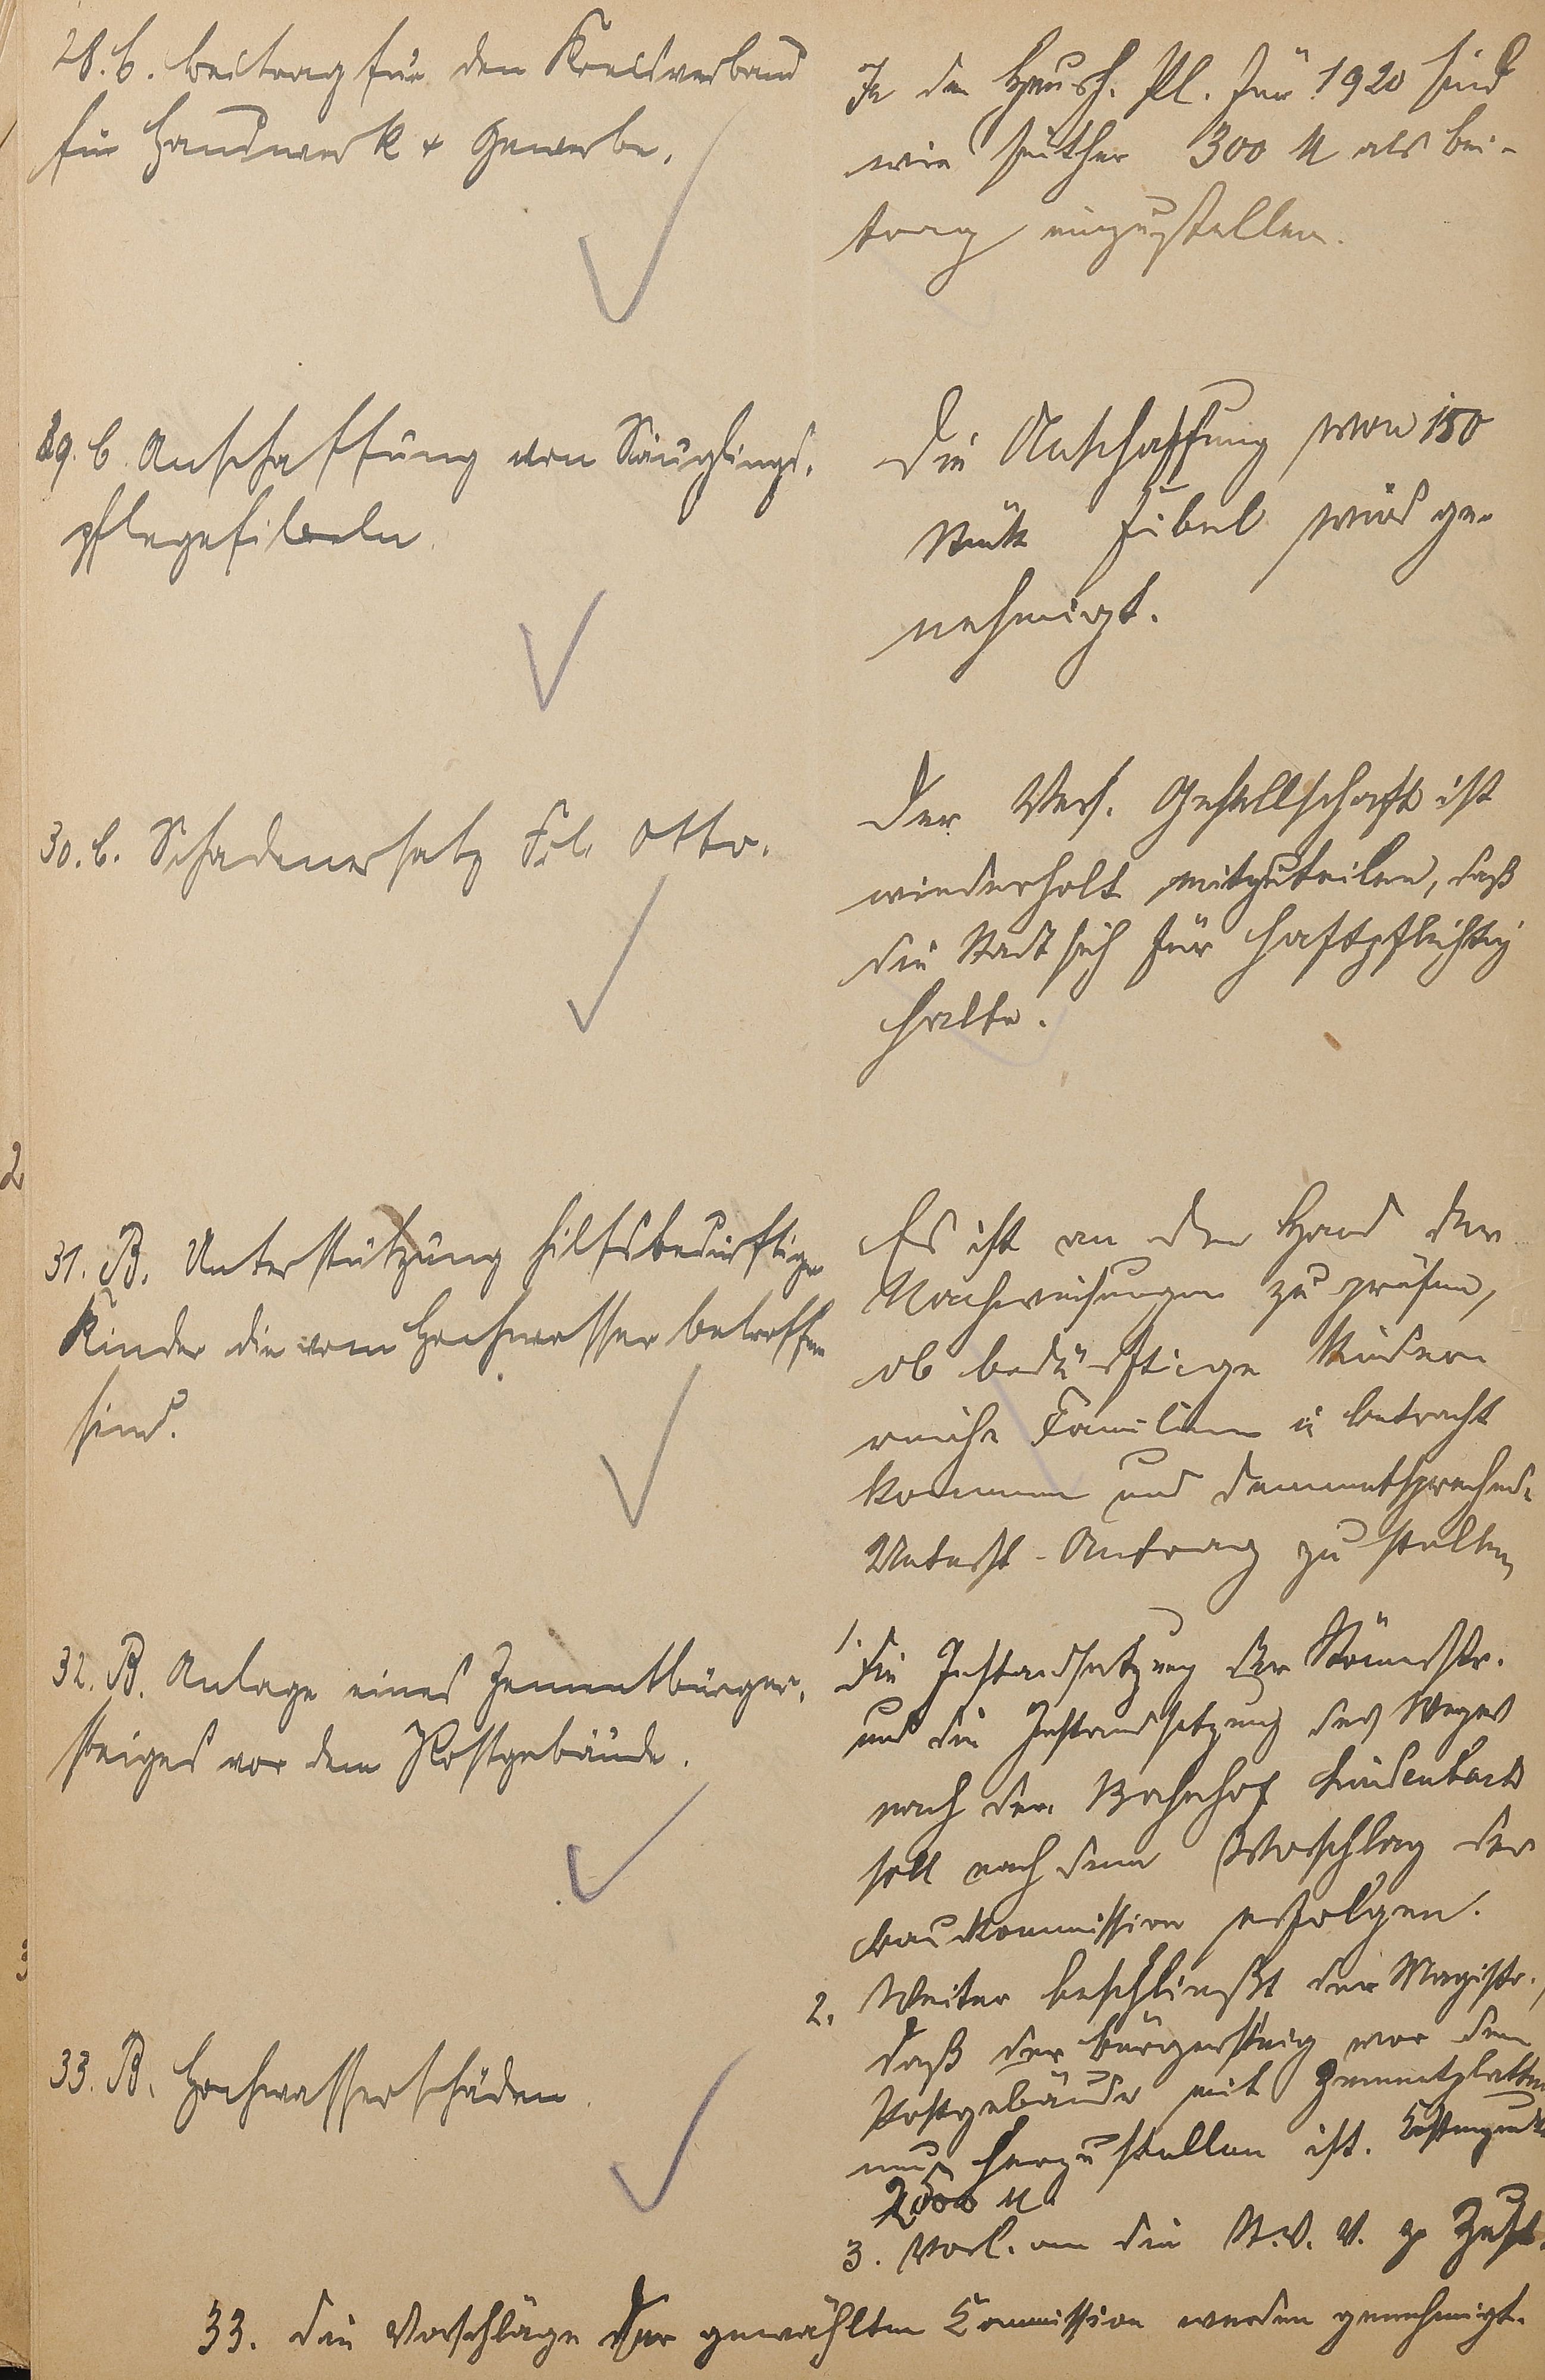 28. B. Beitrag für den Kreisverband
für Handwerk + Gewerbe.
In den Haush. Pl. für 1920 sind
wie seither 300 M als Bei-
trag einzustellen.
29. B. Anschaffung von Säuglings-
pflegefibeln.
Die Anschaffung von 150
Stück Fibel wird ge-
nehmigt.
30. B. Schadenersatz Frl. Otto.
Der Vers. Gesellschaft ist
wiederholt mitzuteilen, daß
die Stadt sich für haftpflichtig
halte.
31. B. Unterstützung hilfsbedürftiger
Kinder die vom Hochwasser betroffen
sind.
Es ist an den Hand der
Nachweisungen zu prüfen,
ob bedürftige Kinder
reiche Familien in Betracht
kommen und dementsprechend.
Unterst.-Antrag zu stellen
32. B. Anlage eines Zementbürger-
steiges vor dem Postgebäude.
1. Die Instandsetzung der
und die Instandsetzung des Weges
nach dem Bahnhof Lindenbach
soll nach dem Vorschlag der
Baukommission erfolgen.
2. Weiter beschließt der Magistr.,
daß der Bürgersteig vor dem
Postgebäude mit Zementplatten
neu herzustellen ist.
2500 M
3. Vorl. an die St. V. V. z. Zust.
33. B. Hochwasserschäden.
33. Die Vorschläge der gewählten Commission werden genehmigt.